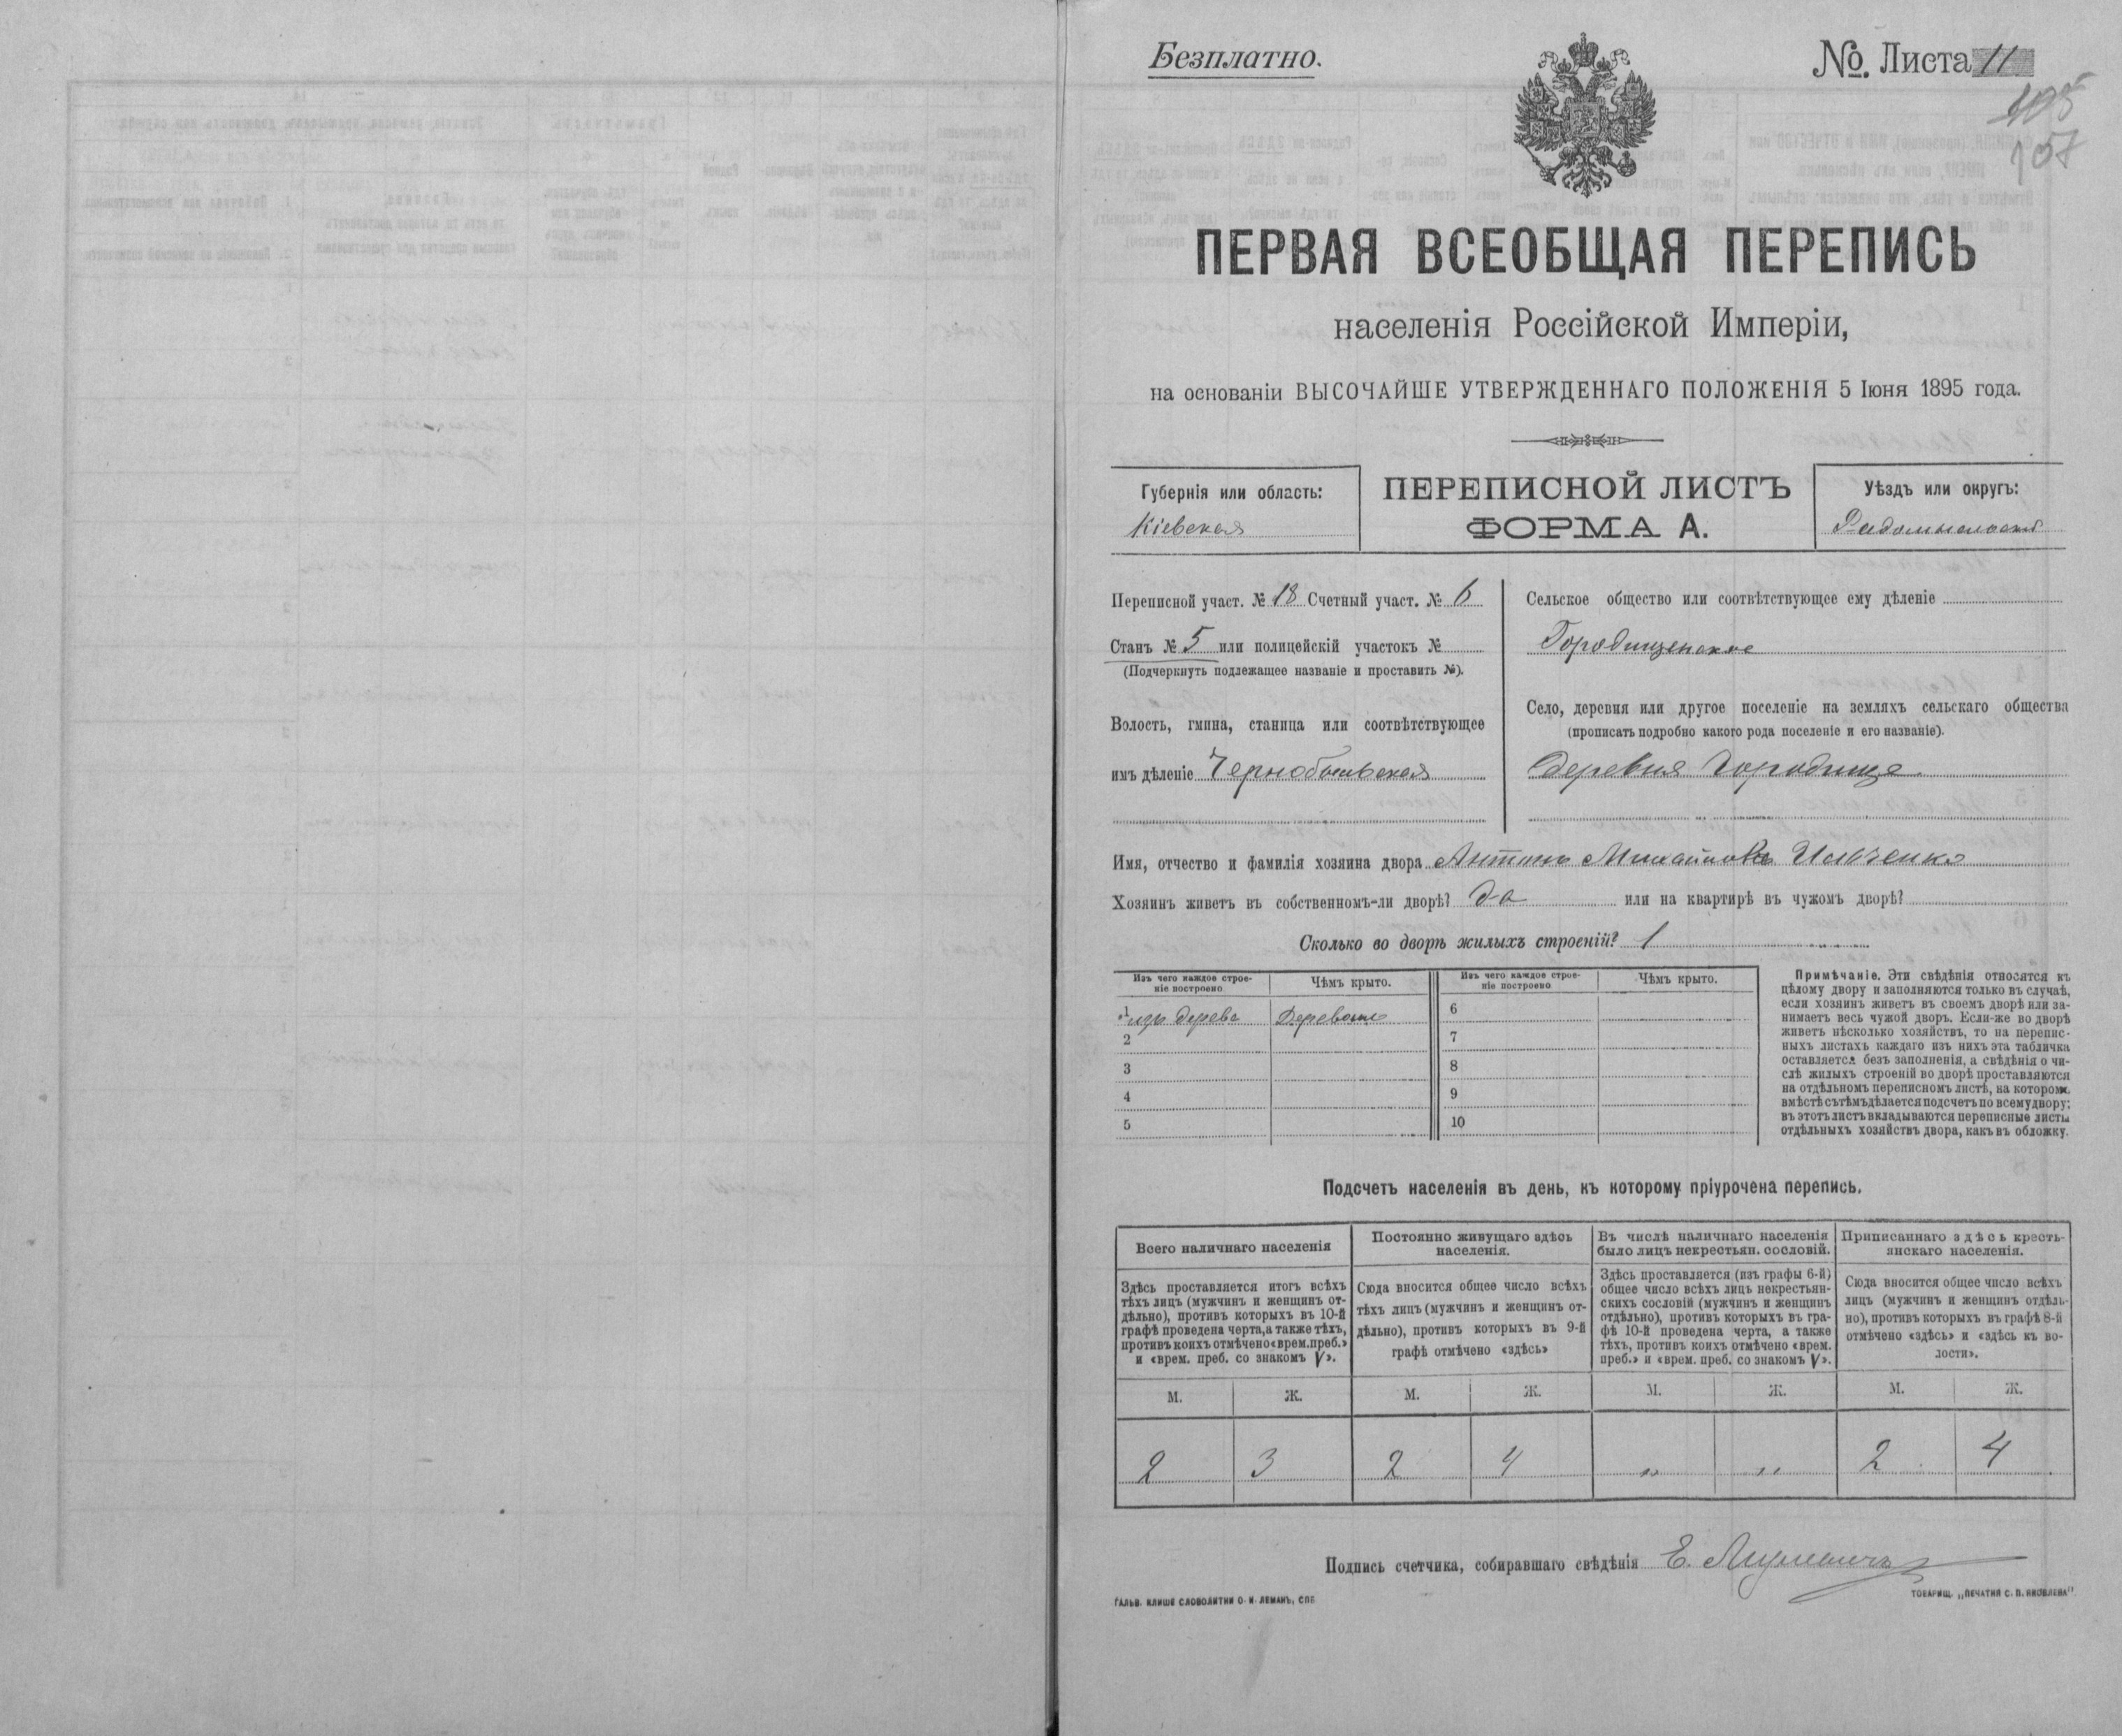 Безплатно.
№. Листа 11
105
107
ПЕРВАЯ ВСЕОБЩАЯ ПЕРЕПИСЬ
населенія Россійской Имперіи,
на основаніи ВЫСОЧАЙШЕ УТВЕРЖДЕННАГО ПОЛОЖЕНІЯ 5 Іюня 1895 года.
Губернія или область:
Кіевская
ПЕРЕПИСНОЙ ЛИСТЪ
ФОРМА А.
Уѣздъ или округъ:
Радомысльскій
Переписной участ. № 18 Счетный участ. № 6
Станъ № 5 или полицейскій участокъ №
(Подчеркнуть подлежащее названіе и проставить №).
Волость, гмина, станица или соотвѣтствующее
имъ дѣленіе Чернобыльская
Сельское общество или соотвѣтствующее ему дѣленіе
Городищенское
Село, деревня или другое поселеніе на земляхъ сельскаго общества
(прописать подробно какого рода поселеніе и его названіе).
Деревня Городище
Имя, отчество и фамилія хозяина двора Антонъ Михайловъ Ильченко
Хозяинъ живетъ въ собственномъ-ли дворѣ? да или на квартирѣ въ чужомъ дворѣ?
Сколько во дворѣ жилыхъ строеній? 1
Изъ чего каждое строе-
ніе построено
Чѣмъ крыто.
Изъ чего каждое строе-
ніе построено
Чѣмъ крыто.
1 изъ дерева Деревомъ
2
3
4
5
6
7
8
9
10
Примѣчаніе. Эти свѣдѣнія относятся къ
цѣлому двору и заполняются только въ случаѣ,
если хозяинъ живетъ въ своемъ дворѣ или за-
нимаетъ весь чужой дворъ. Если-же во дворѣ
живетъ нѣсколько хозяйствъ, то на перепис-
ныхъ листахъ каждаго изъ нихъ эта табличка
оставляется безъ заполненія, а свѣдѣнія о чи-
слѣ жилыхъ строеній во дворѣ проставляются
на отдѣльномъ переписномъ листѣ, на которомъ
вмѣстѣ съ тѣмъ дѣлается подсчетъ по всему двору;
въ этотъ листъ вкладываются переписные листы
отдѣльныхъ хозяйствъ двора, какъ въ обложку.
Подсчетъ населенія въ день, къ которому пріурочена перепись.
Всего наличнаго населенія
Здѣсь проставляется итогъ всѣхъ
тѣхъ лицъ (мужчинъ и женщинъ от-
дѣльно), противъ которыхъ въ 10-й
графѣ проведена черта, а также тѣхъ,
противъ коихъ отмѣчено «врем. преб.»
и «врем. преб. со знакомъ V».
Постоянно живущаго здѣсь
населенія.
Сюда вносится общее число всѣхъ
тѣхъ лицъ (мужчинъ и женщинъ от-
дѣльно), противъ которыхъ въ 9-й
графѣ отмѣчено «здѣсь»
Въ числѣ наличнаго населенія
было лицъ некрестьян. сословій.
Здѣсь проставляется (изъ графы 6-й)
общее число всѣхъ лицъ некрестьян-
скихъ сословій (мужчинъ и женщинъ
отдѣльно), противъ которыхъ въ гра-
фѣ 10-й проведена черта, а также
тѣхъ, противъ коихъ отмѣчено «врем.
преб.» и «врем. преб. со знакомъ V».
Приписаннаго здѣсь кресть-
янскаго населенія.
Сюда вносится общее число всѣхъ
лицъ (мужчинъ и женщинъ отдѣль-
но), противъ которыхъ въ графѣ 8-й
отмѣчено «здѣсь» и «здѣсь къ во-
лости».
М. Ж. М. Ж. М. Ж. М. Ж.
2 3 2 4 „ „ 2 4
Подпись счетчика, собиравшаго свѣдѣнія Е.
ГАЛЬВ. КЛИШЕ СЛОВОЛИТНИ О. И. ЛЕМАНЪ, СПБ
ТОВАРИЩ. „ПЕЧАТНЯ С. П. ЯКОВЛЕВА"